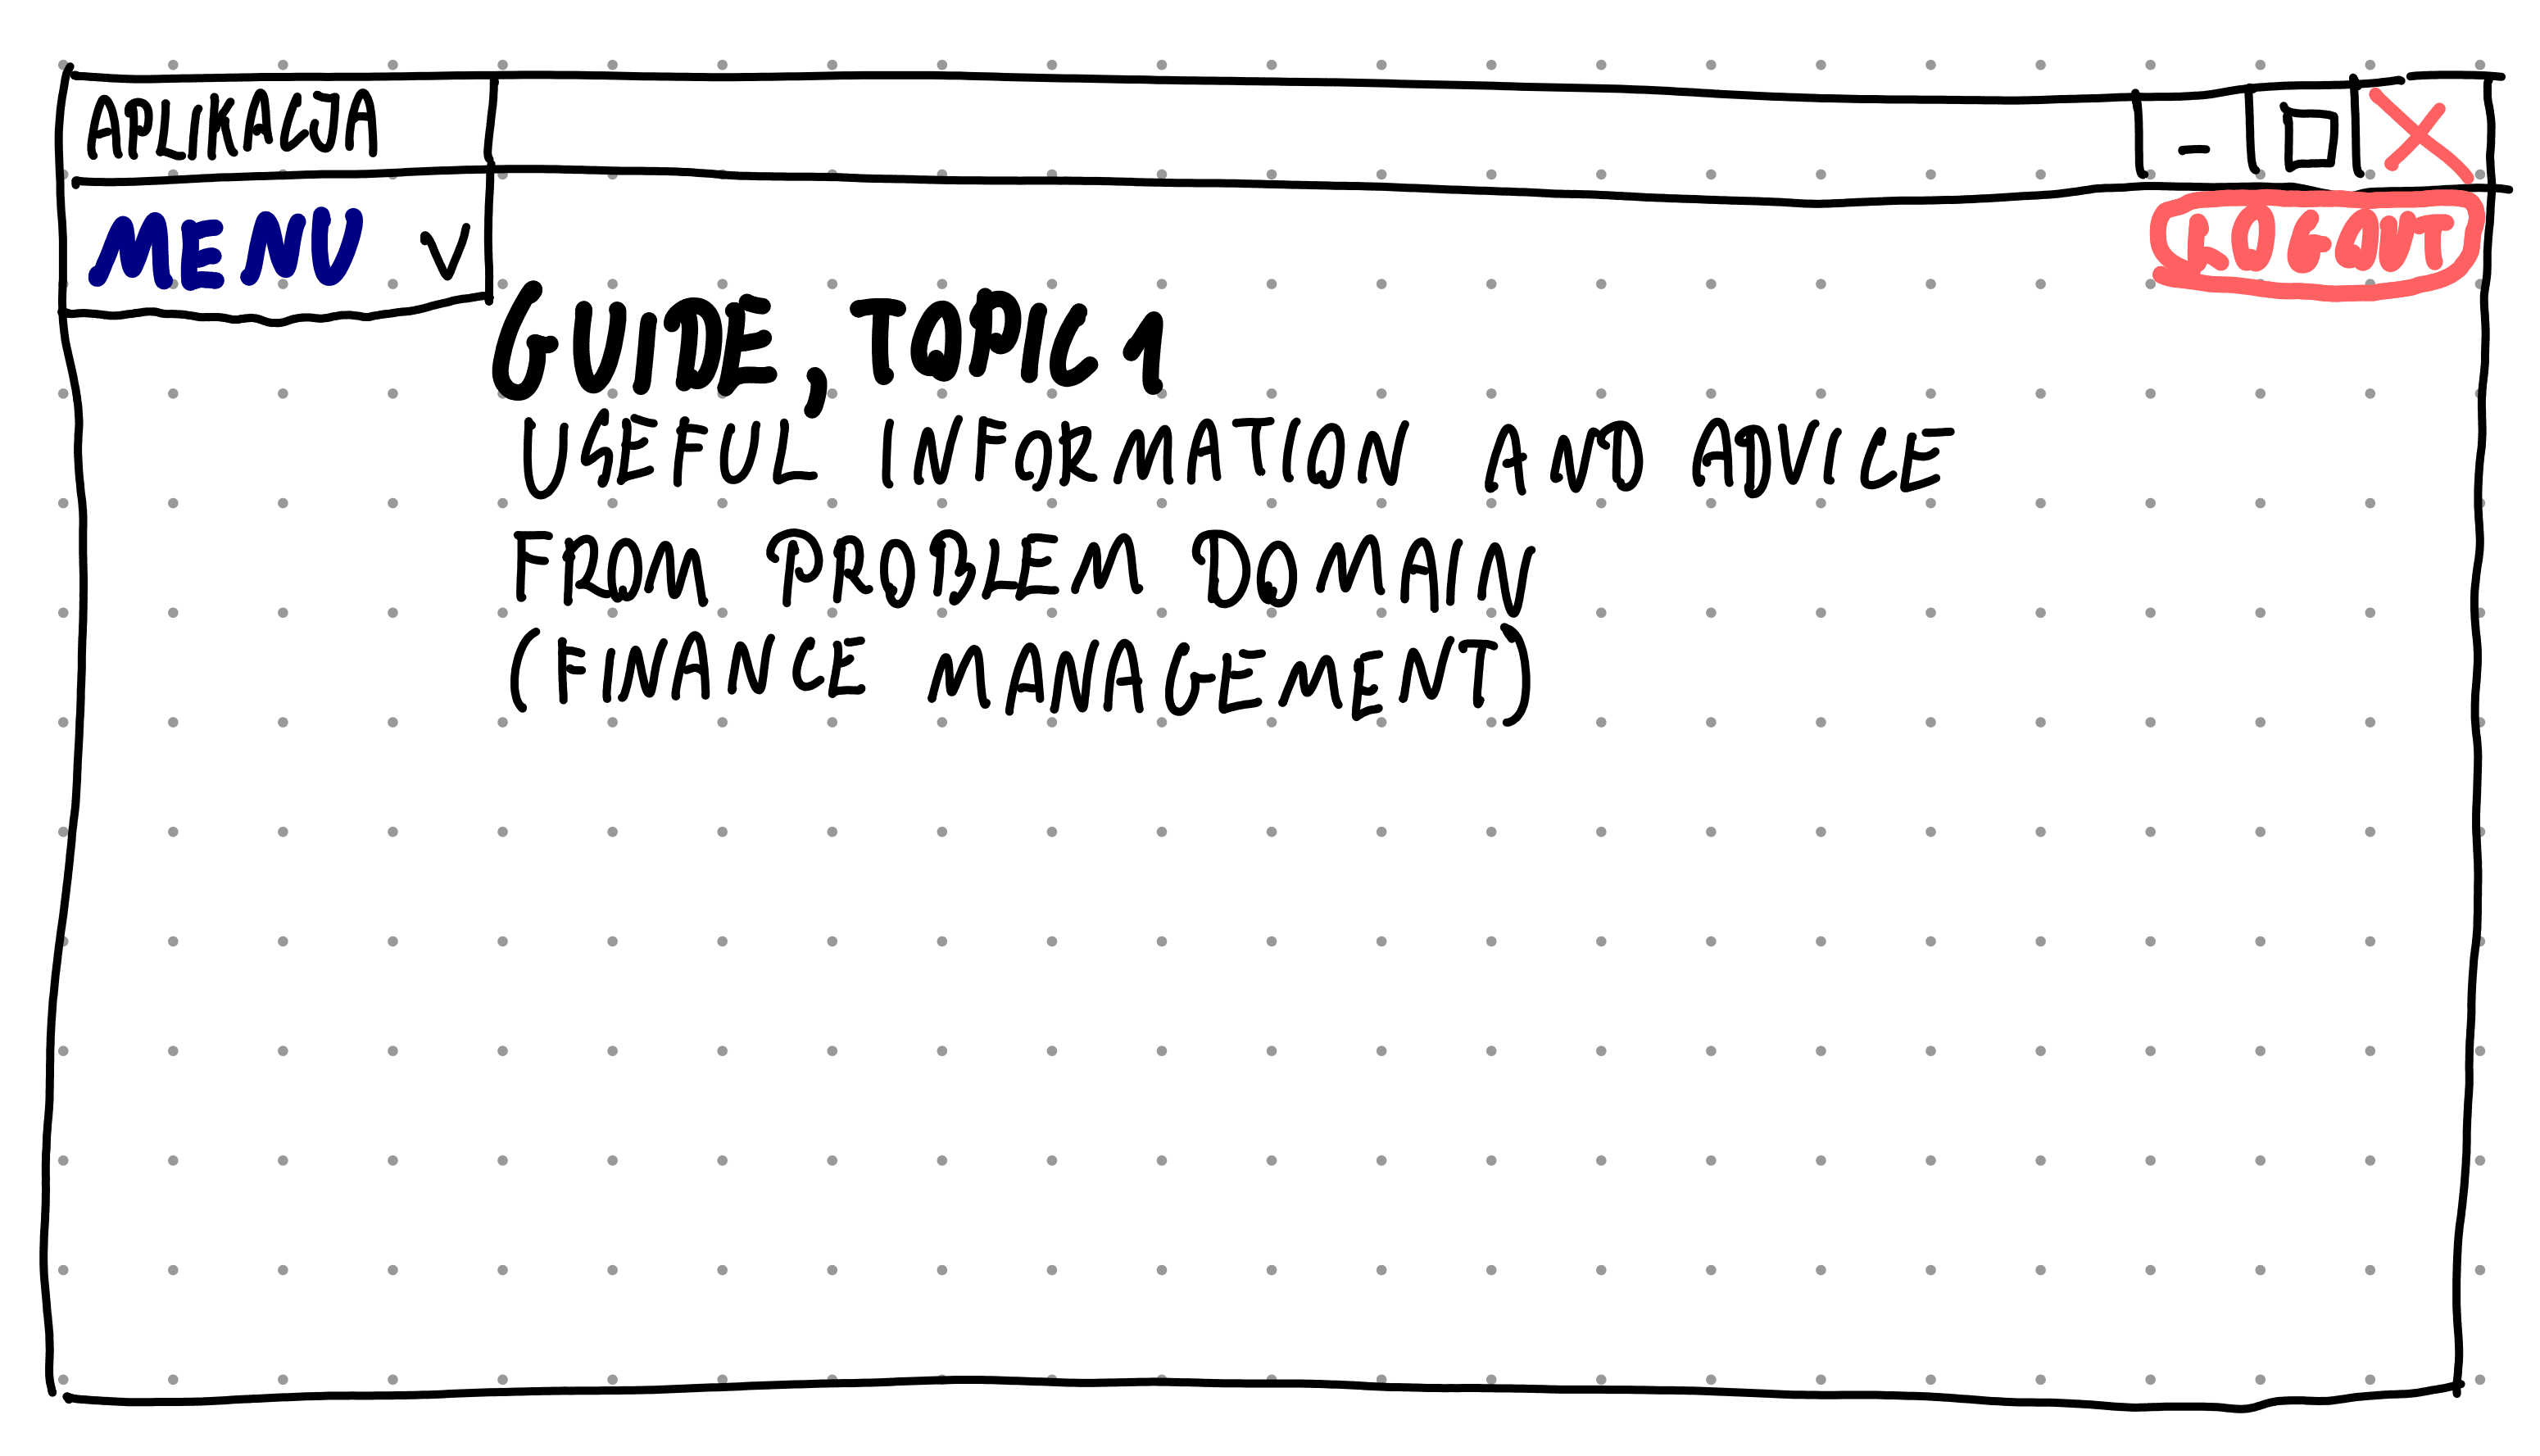 APLIKACJA
MENU
LOGOUT
GUIDE, TOPIC 1
USEFUL INFORMATION AND ADVICE
FROM PROBLEM DOMAIN
(FINANCE MANAGEMENT)